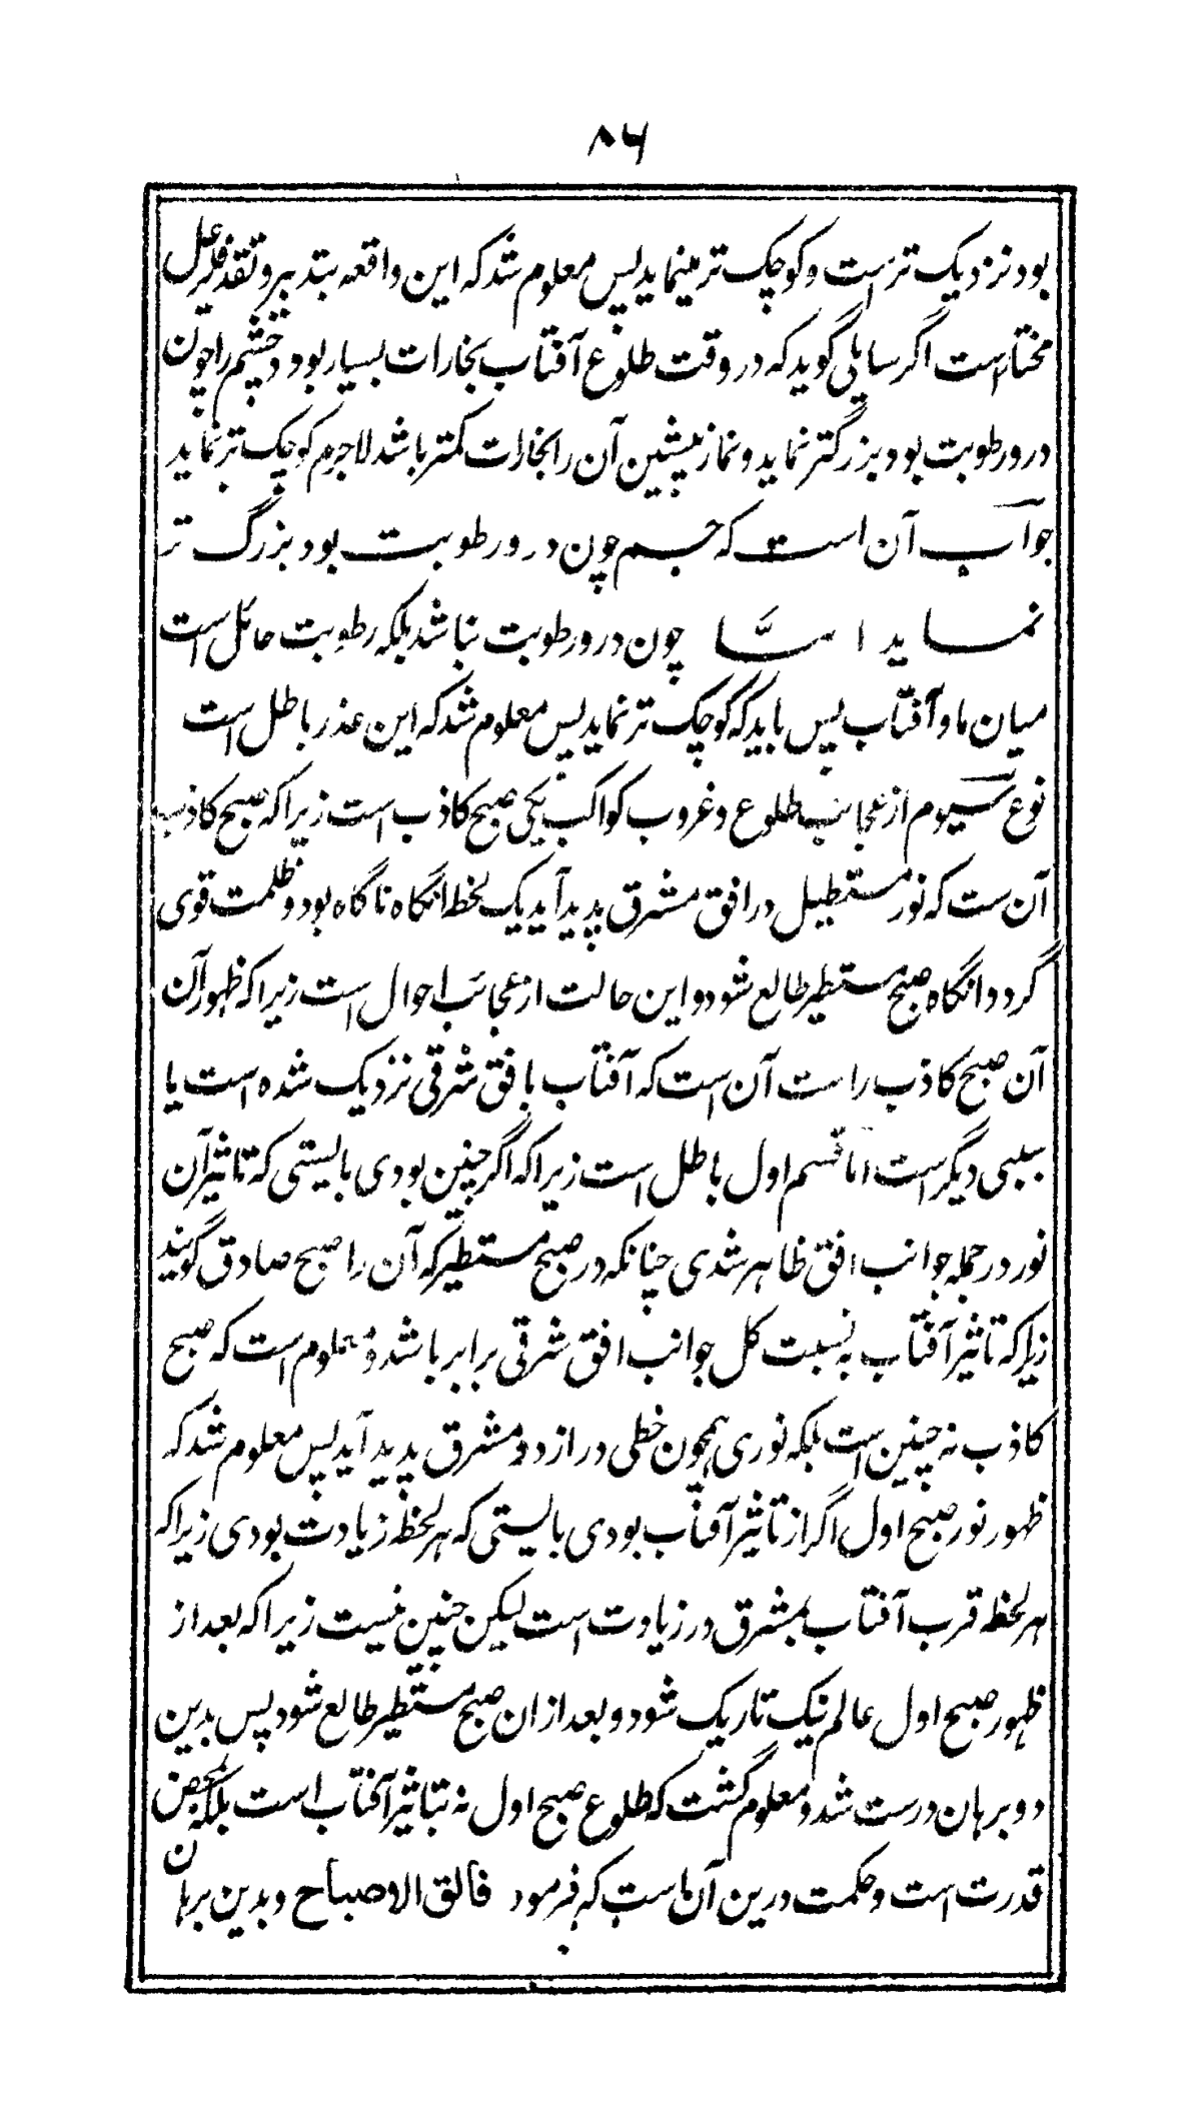 ۸۶
بود نزدیک ترست و کوچک تر مینماید پس معلوم شد که این واقعه بتدبیر و تقدیر فاعل
مختار است اگر سایلی گوید که در وقت طلوع آفتاب بخارات بسیار بود و چشم را چون
درو رطوبت بود بزرگتر نماید و نماز پیشین آن را بخارات کمتر باشد لاجرم کوچک تر نماید
جواب آن است که جسم چون درو رطوبت بود بزرگ تر
نماید اما چون درو رطوبت نباشد بلکه رطوبت حائل است
میان ما و آفتاب پس باید که کوچک تر نماید پس معلوم شد که این عذر باطل است
نوع سیوم از عجائب طلوع و غروب کواکب یکی صبح کاذب است زیرا که صبح کاذب
آن ست که نور مستطیل در افق مشرق پدید آید یک لحظه انگاه ناگاه بود و ظلمت قوی
گردد و انگاه صبح مستطیر طالع شود و این حالت از عجائب احوال است زیرا که ظهور آن
آن صبح کاذب را ست آن است که آفتاب بافق شرقی نزدیک شده است یا
سببی دیگر است اما قسم اول باطل است زیرا که اگر چنین بودی بایستی که تاثیر آن
نور در جمله جوانب افق ظاهر شدی چنانکه در صبح مستطیر که آن را صبح صادق گویند
زیرا که تاثیر آفتاب به نسبت کل جوانب افق شرقی برابر باشد و معلوم است که صبح
کاذب نه چنین است بلکه نوری همچون خطی دراز در مشرق پدید آید پس معلوم شد که
ظهور نور صبح اول اگر از تاثیر آفتاب بودی بایستی که هر لحظه زیادت بودی زیرا که
هر لحظه قرب آفتاب بمشرق در زیادت است لیکن چنین نیست زیرا که بعد از
ظهور صبح اول عالم نیک تاریک شود و بعد از ان صبح مستطیر طالع شود پس بدین
دو برهان درست شد و معلوم گشت که طلوع صبح اول نه بتاثیر آفتاب است بلکه بمحض
قدرت است و حکمت درین آن است که فرمود فالق الاصباح و بدین برهان